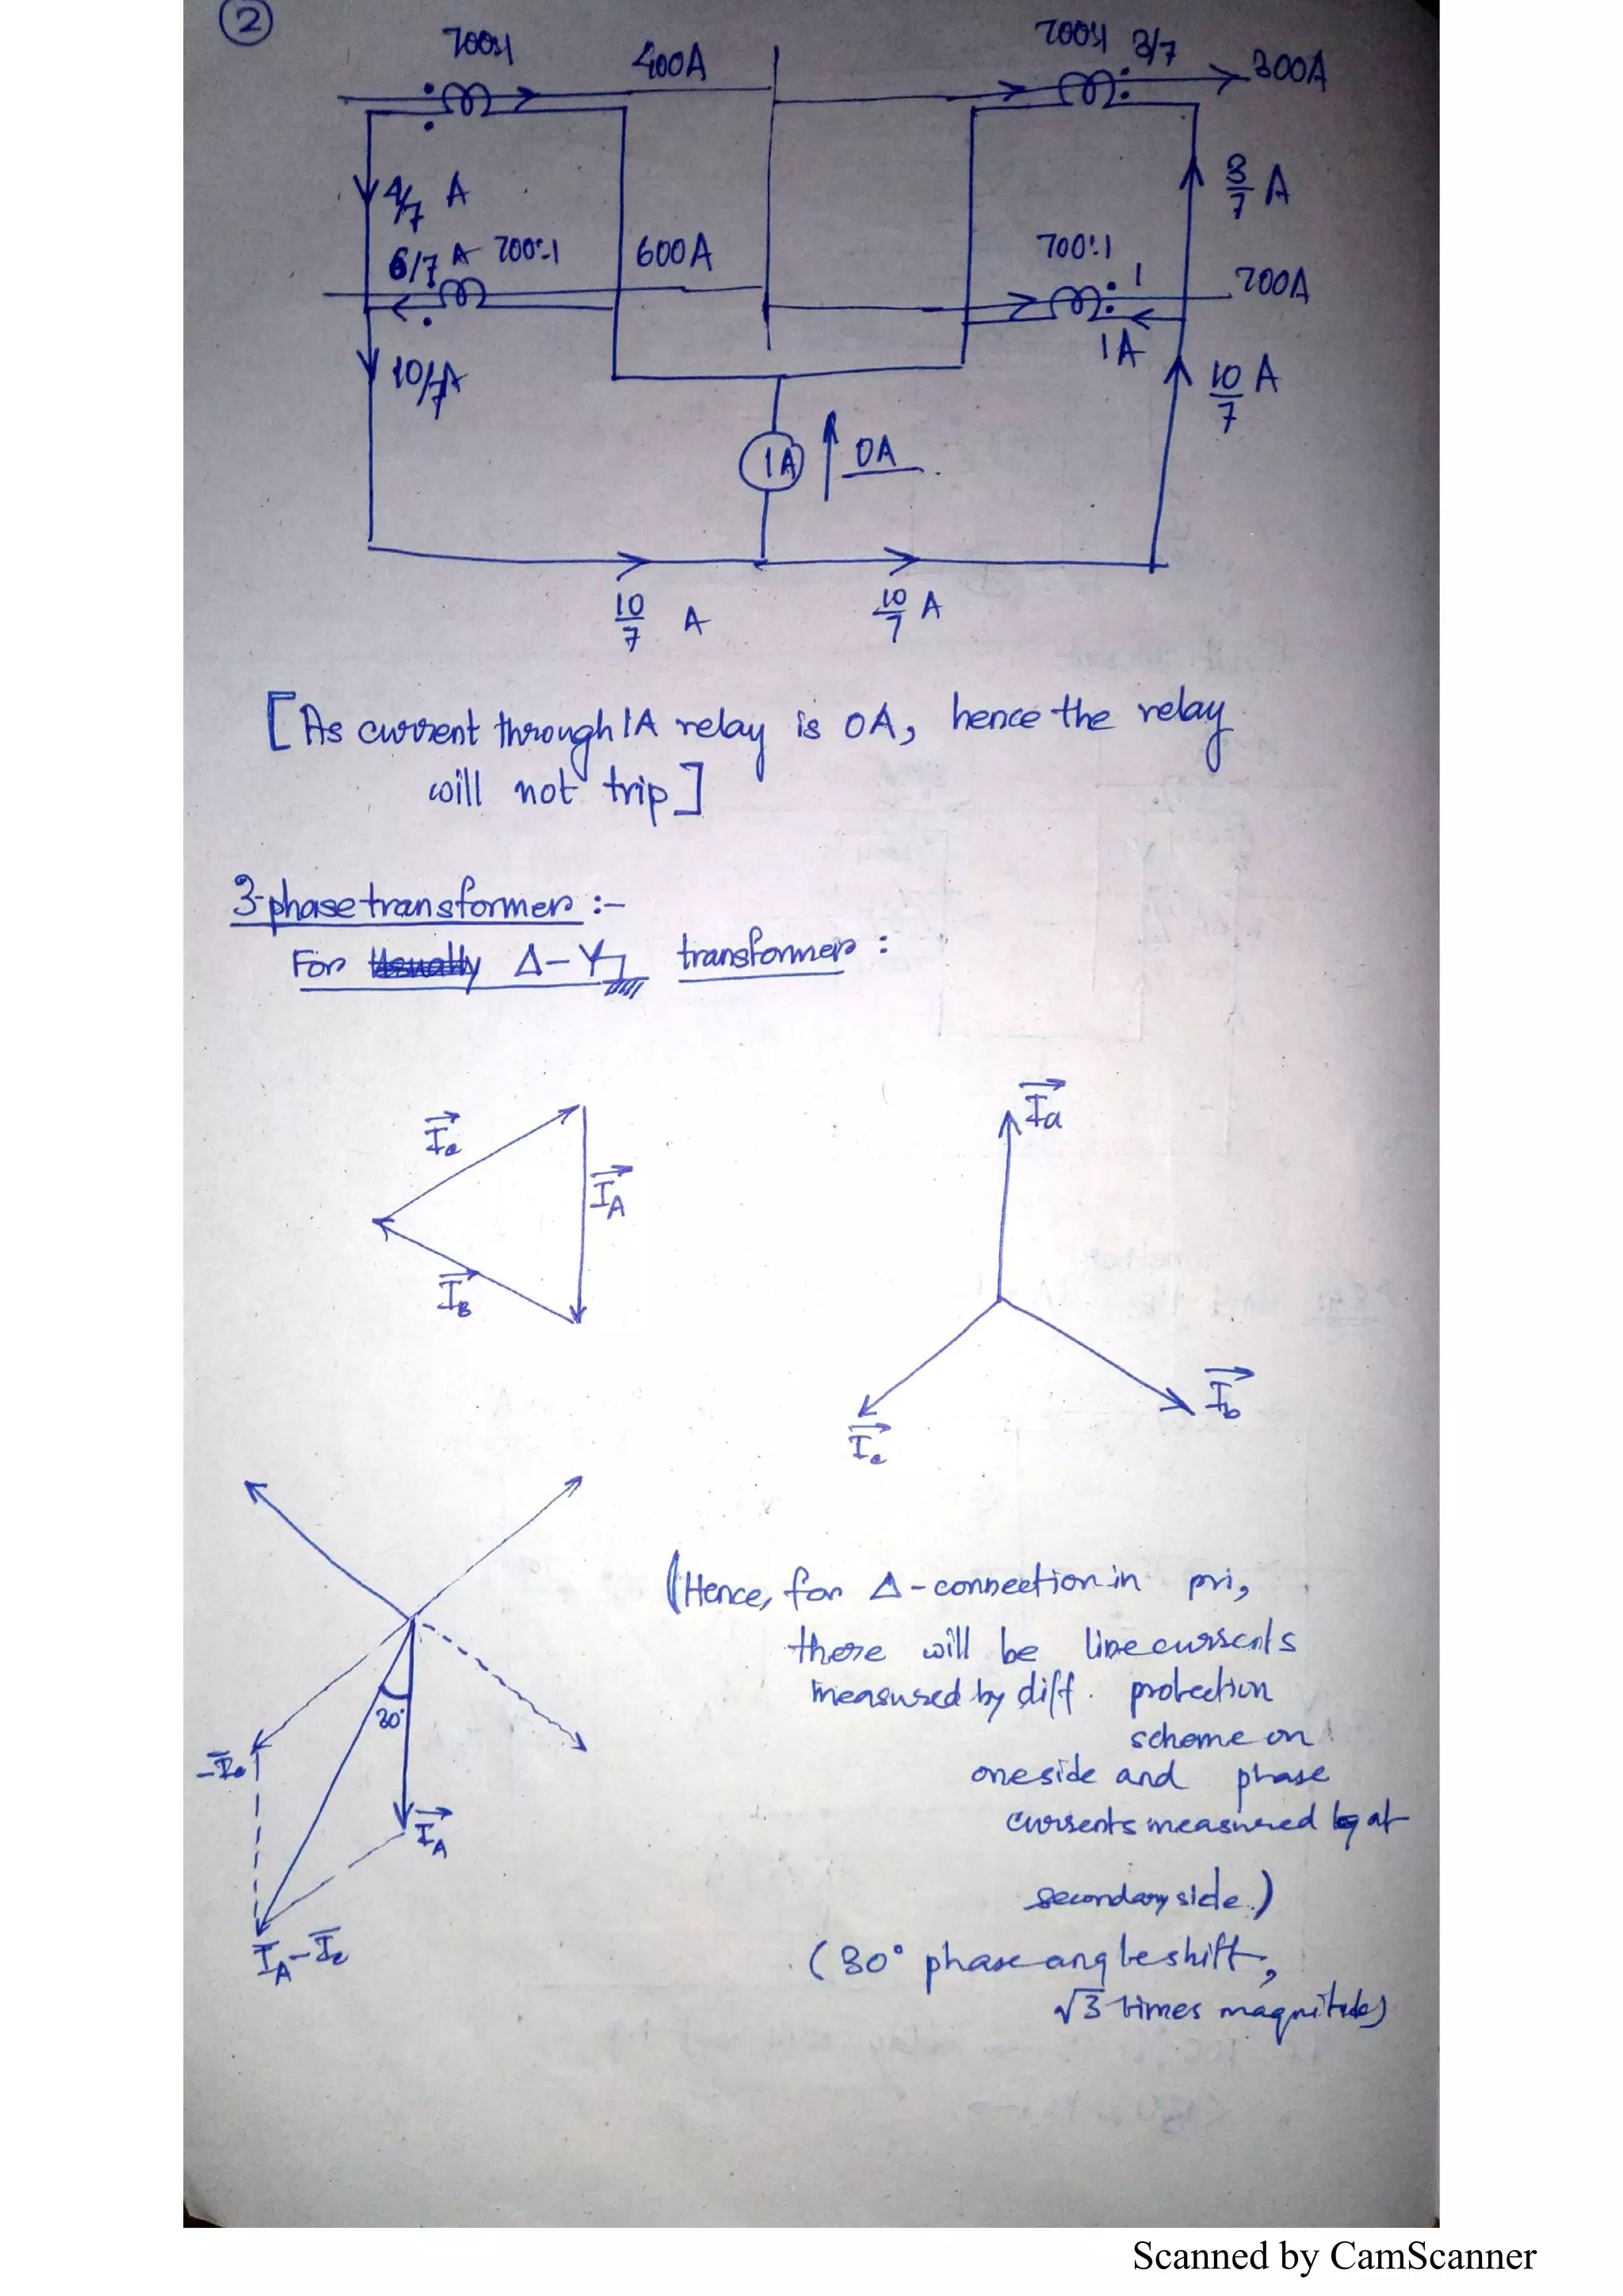 2
700:1
400A
700:1 3/7
300A
4/7 A
3/7 A
6/7 A 700:1
600A
700:1
1
700A
1A
10/7 A
10/7 A
1A
0A
10/7 A
10/7 A
[As current through 1A relay is 0A, hence the relay
will not trip]
3-phase transformer :-
For Δ-Y transformer :
Ia
Ic
IA
IB
Ib
Ic
30°
-Ic
IA
IA-Ic
(Hence, for Δ-connection in pri,
there will be line currents
measured by diff. protection
scheme on
one side and phase
currents measured at
secondary side.)
(30° phase angle shift,
√3 times magnitude)
Scanned by CamScanner